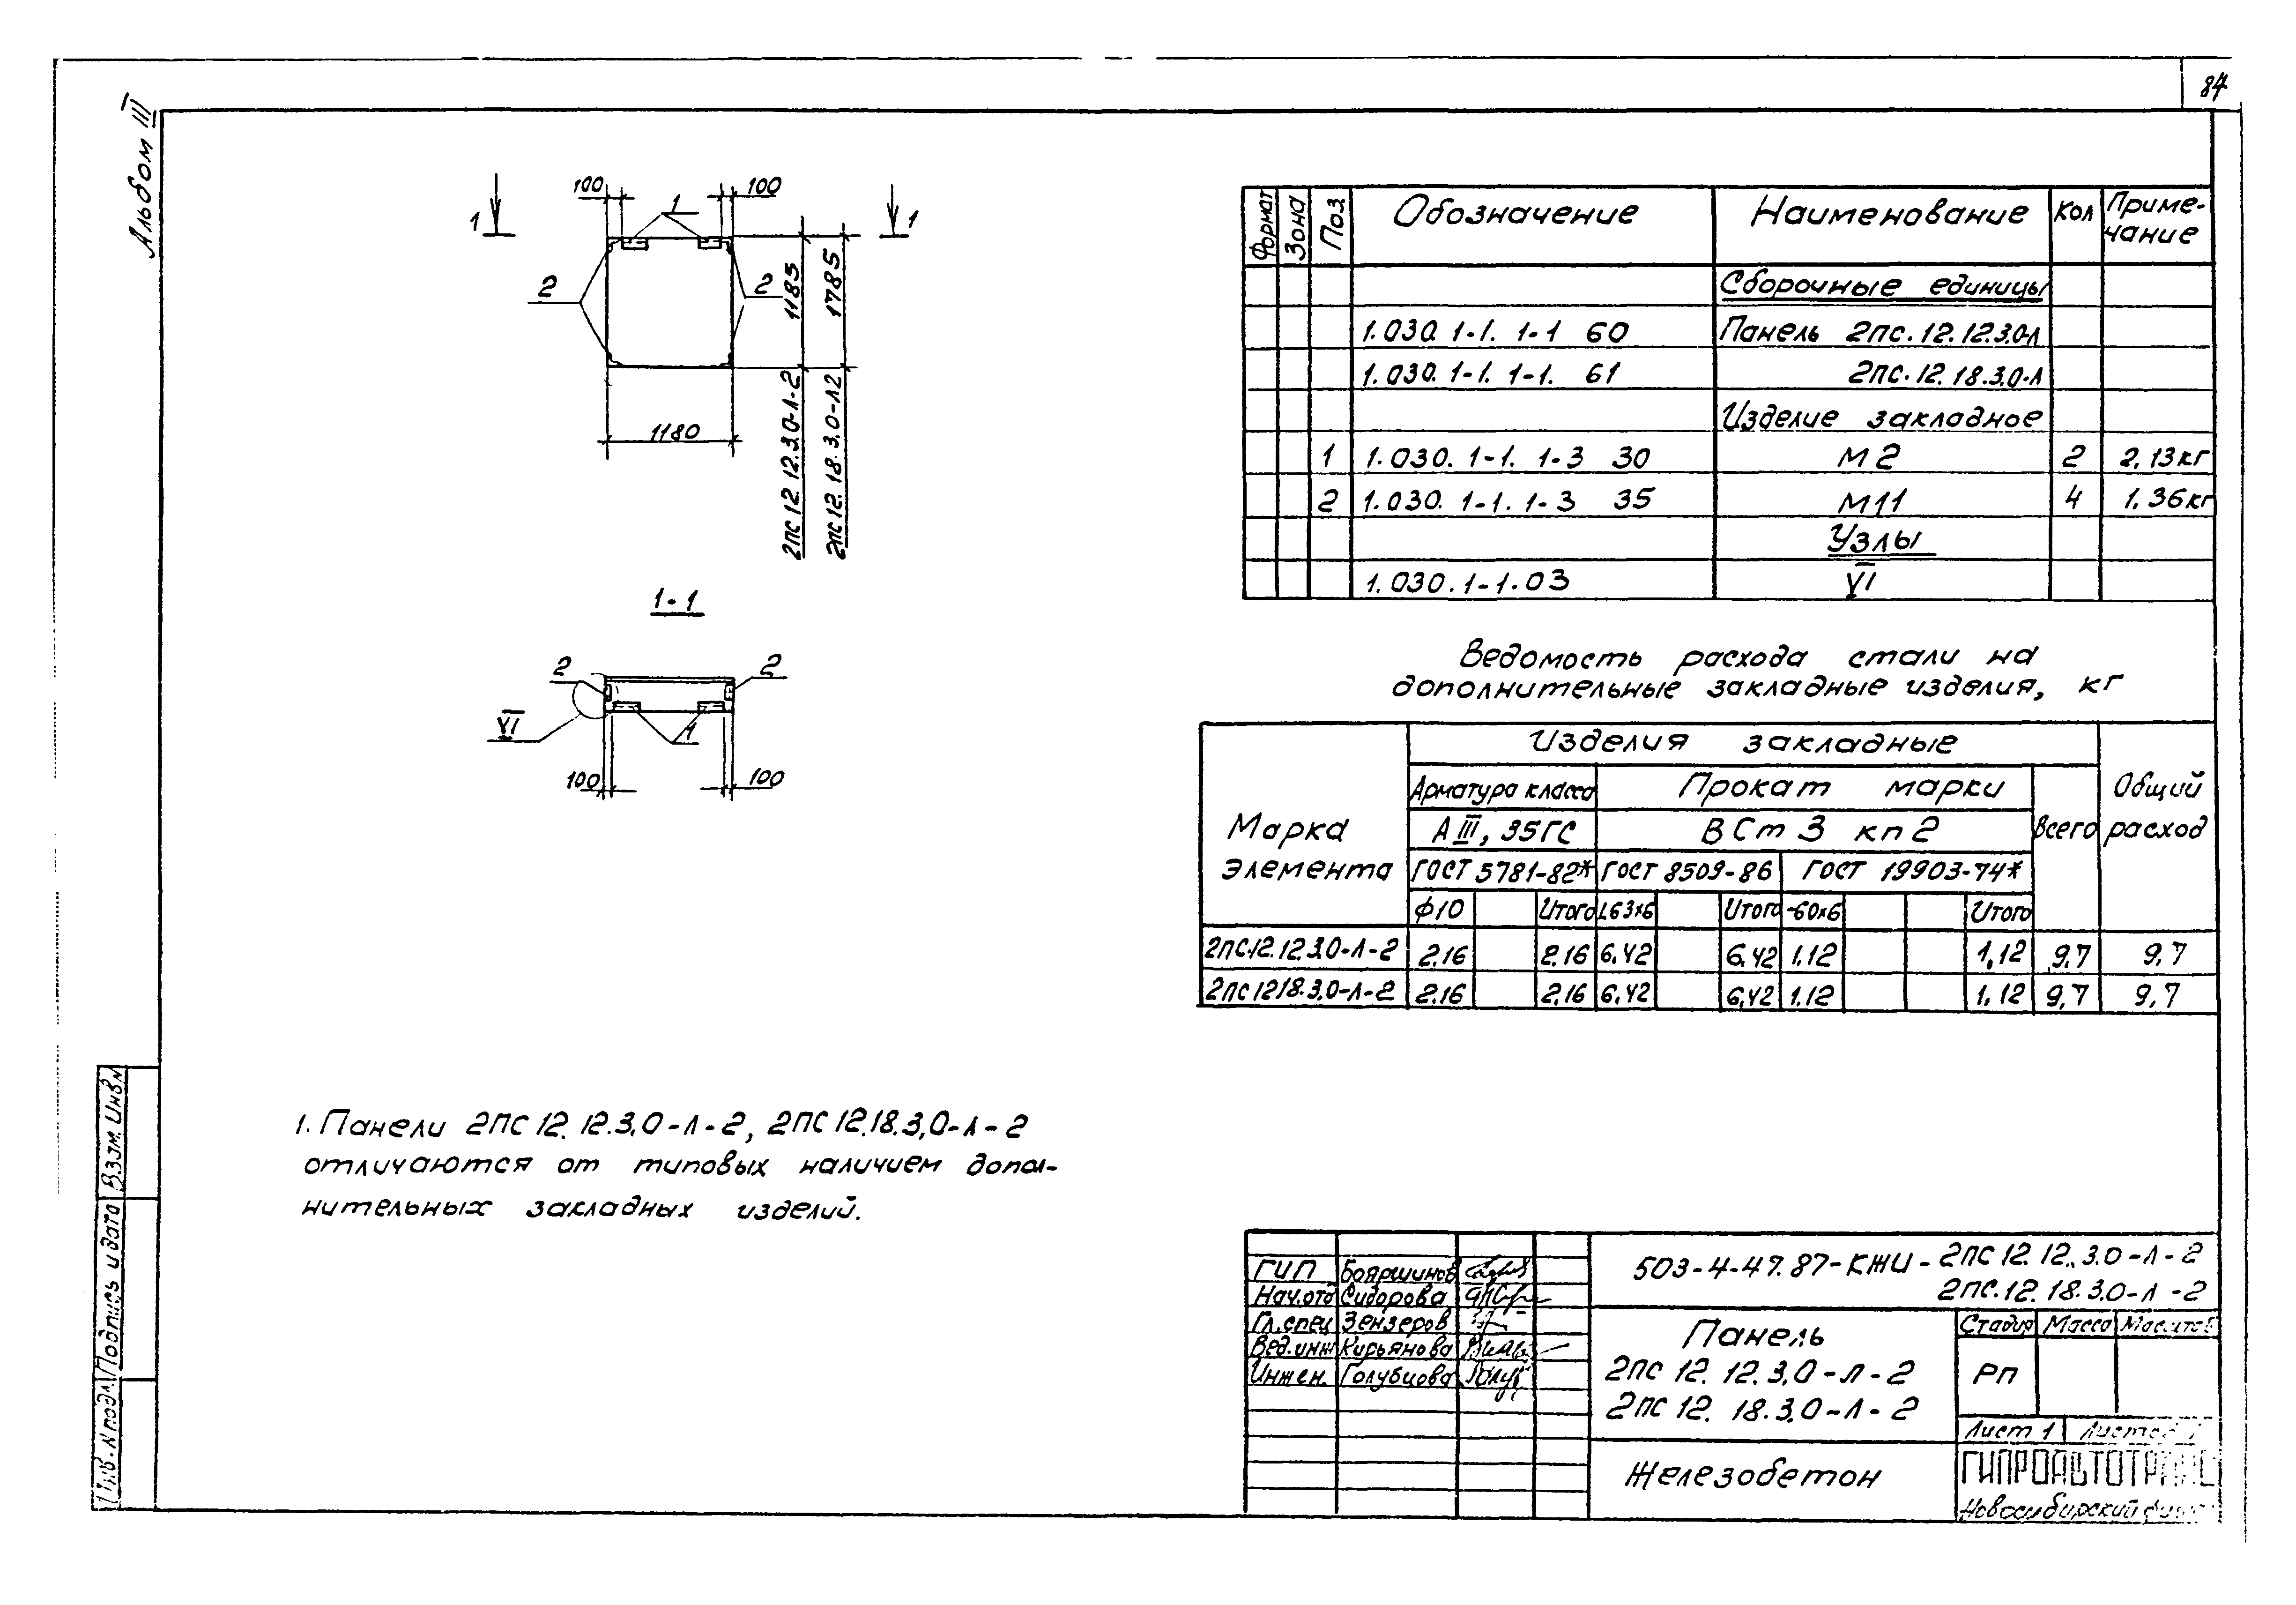 84
Альбом III
100
100
1
1
1
2
2
1185
1785
2ПС 12. 12.3.0-Л-2
2ПС 12. 18. 3.0-Л2
1180
1-1
2
2
VI
1
100
100
Формат Зона Поз. Обозначение Наименование Кол Приме-
чание
Сборочные единицы
1.030. 1-1. 1-1 60 Панель 2ПС.12.12.3.0-Л
1.030. 1-1. 1-1. 61 2ПС.12.18.3.0-Л
Изделие закладное
1 1.030. 1-1. 1-3 30 М2 2 2,13кг
2 1.030. 1-1. 1-3 35 М11 4 1.36кг
Узлы
1.030.1-1.03 VI
Ведомость расхода стали на
дополнительные закладные изделия, кг
Марка
элемента
Изделия закладные
Общий
расход
Арматура класса Прокат марки
Всего
А III, 35ГС ВСт 3 кп2
ГОСТ 5781-82* ГОСТ 8509-86 ГОСТ 19903-74*
ф10 Итого L63х6 Итого -60х6 Итого
2ПС.12.12.3.0-Л-2 2.16 2.16 6.42 6.42 1.12 1,12 9,7 9,7
2ПС 12 18.3,0-Л-2 2.16 2,16 6,42 6,42 1.12 1,12 9,7 9,7
1. Панели 2ПС 12. 12.3.0-Л-2, 2ПС 12.18.3,0-Л-2
отличаются от типовых наличием допол-
нительных закладных изделий.
Инв. N подл. Подпись и дата Взам. Инв N
ГИП Бояршинов
Нач.отд Сидорова
Гл.спец Зензеров
Вед.инж Кирьянова
Инжен. Голубцова
503-4-47.87-КЖИ-2ПС 12. 12. 3.0-Л-2
2ПС.12. 18. 3.0-Л-2
Панель
2ПС 12. 12.3,0-Л-2
2ПС 12. 18.3.0-Л-2
Стадия Масса Масштаб
РП
Лист 1 Листов
Железобетон
ГИПРОАВТОТРАНС
Новосибирский